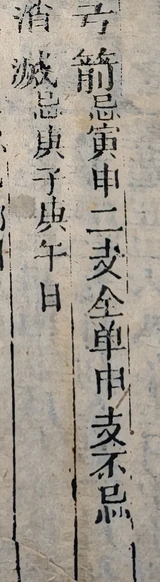 弓箭忌寅申二支全单申支不忌
消滅忌庚子庚午日